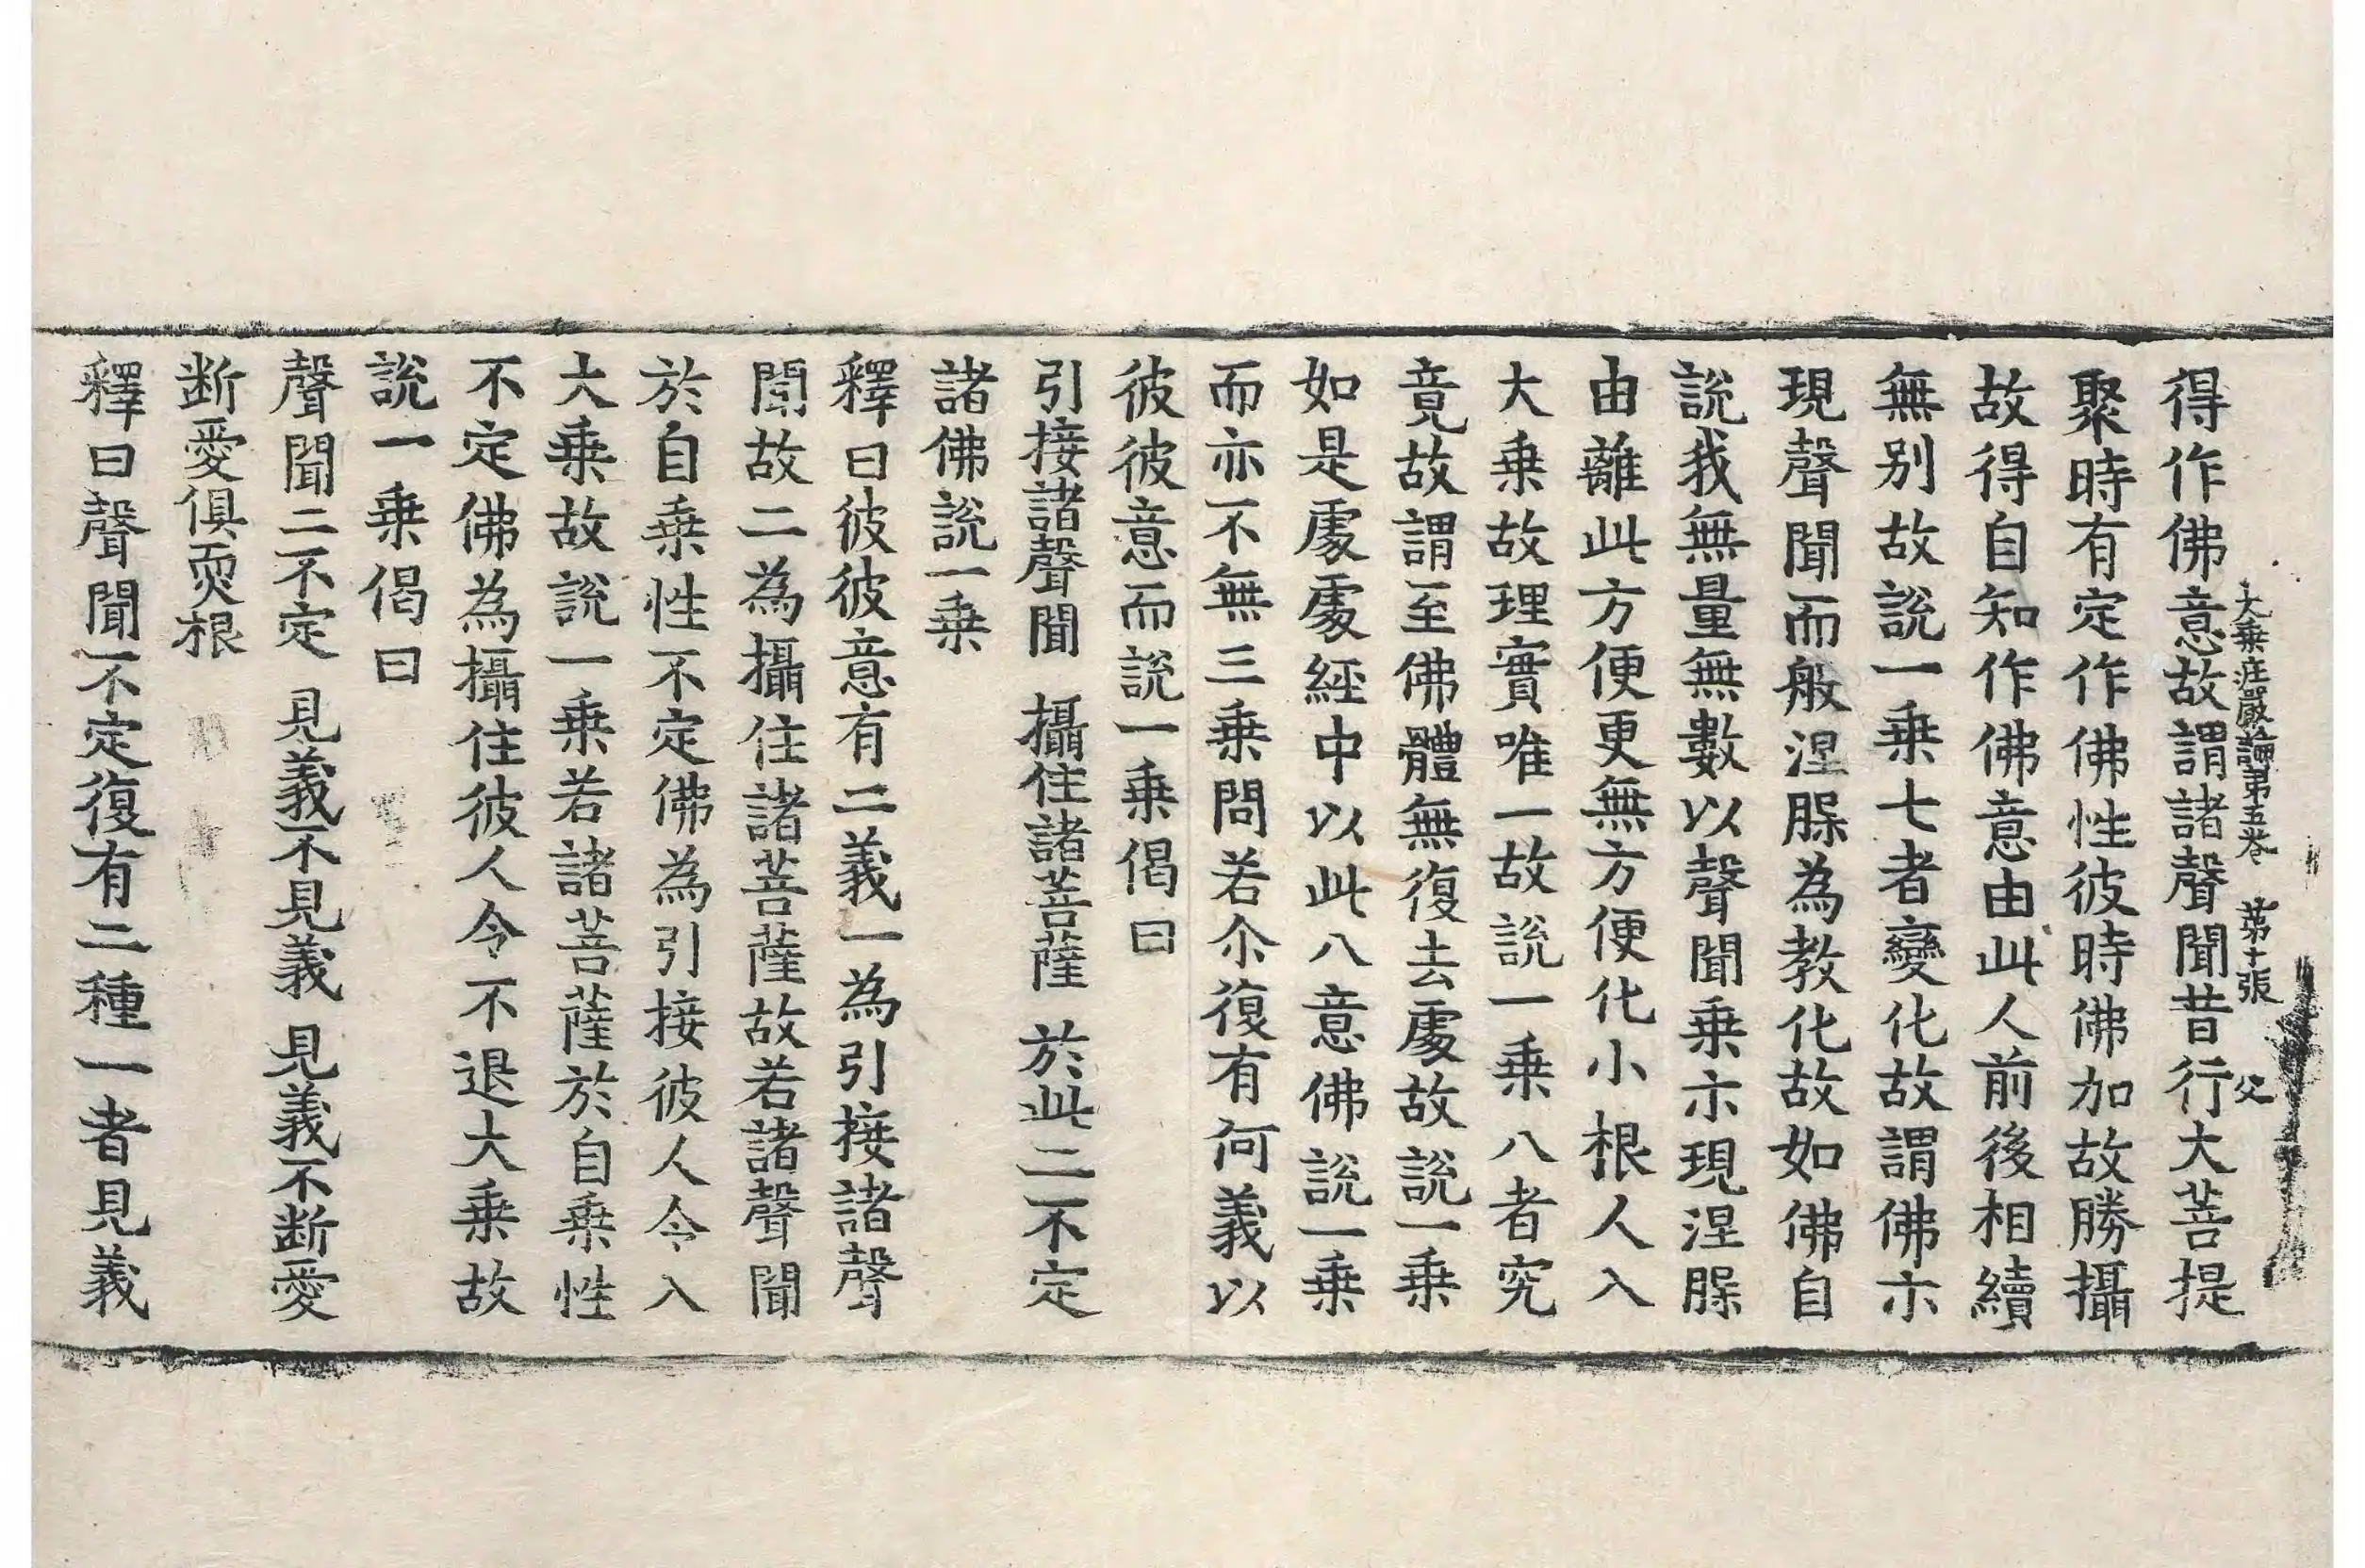 大乗庄嚴論第五卷 第十張 父
得作佛意故謂諸聲聞昔行大菩提
聚時有定作佛性彼時佛加故勝攝
故得自知作佛意由此人前後相續
無别故說一乗七者變化故謂佛示
現聲聞而般涅脲為教化故如佛自
說我無量無數以聲聞乗示現涅脲
由離此方便更無方便化小根人入
大乗故理實唯一故說一乗八者究
竟故謂至佛體無復去處故說一乗
如是處處經中以此八意佛說一乗
而亦不無三乗問若尒復有何義以
彼彼意而說一乗偈曰
引接諸聲聞 攝住諸菩薩 於此二不定
諸佛說一乗
釋曰彼彼意有二義一為引接諸聲
聞故二為攝住諸菩薩故若諸聲聞
於自乗性不定佛為引接彼人令入
大乗故說一乗若諸菩薩於自乗性
不定佛為攝住彼人令不退大乗故
說一乗偈曰
聲聞二不定 見義不見義 見義不断愛
断愛俱耎根
釋曰聲聞不定復有二種一者見義